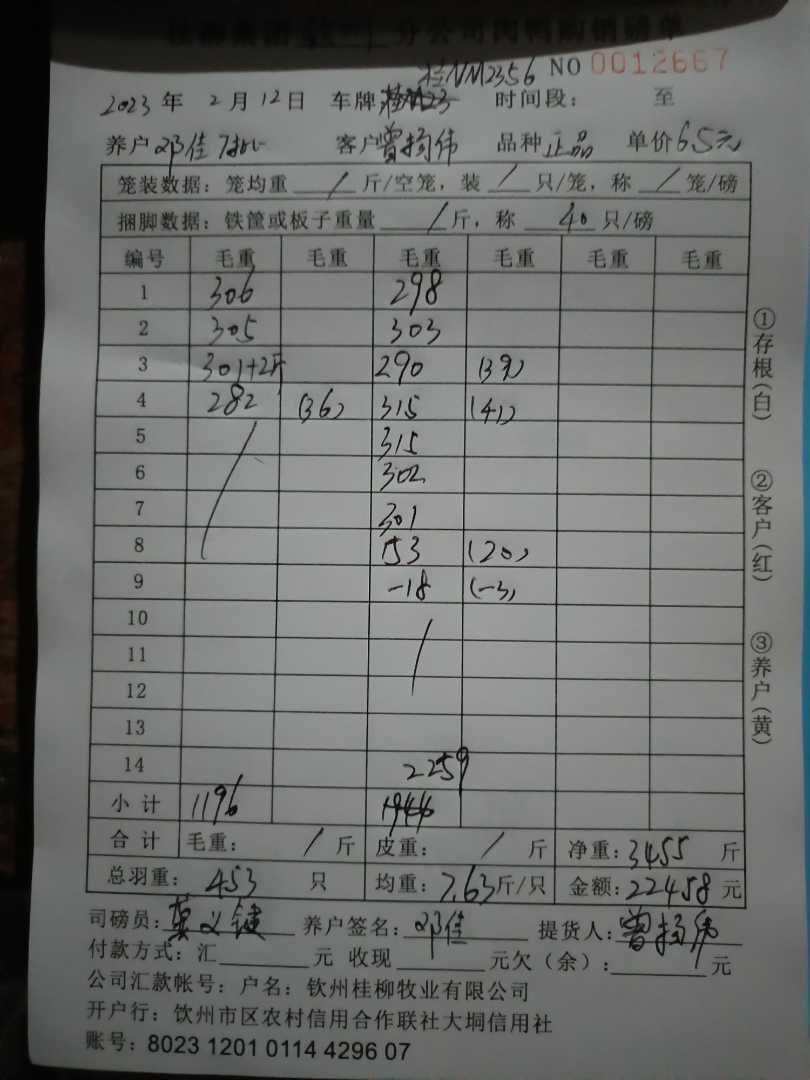 桂柳集团 分公司肉鸭购销磅单
桂NM2356 NO 0012667
2023 年 2 月 12 日 车牌 时间段: 至
养户 邓佳 客户 曾扬伟 品种 正品 单价 6.5元
笼装数据: 笼均重 / 斤/空笼, 装 / 只/笼, 称 / 笼/磅
捆脚数据: 铁筐或板子重量 / 斤, 称 40 只/磅
编号 毛重 毛重 毛重 毛重 毛重 毛重
1 306 298
2 305 303
3 301+2斤 290 (39)
4 282 (36) 315 (41)
5 315
6 302
7 301
8 153 (20)
9 -18 (-3)
10
11
12
13
14 2259
小计 1196 1944
合计 毛重: / 斤 皮重: / 斤 净重: 3455 斤
总羽重: 453 只 均重: 7.63 斤/只 金额: 22458 元
司磅员: 莫义键 养户签名: 邓佳 提货人: 曾扬伟
付款方式: 汇 元 收现 元欠(余): 元
公司汇款帐号: 户名: 钦州桂柳牧业有限公司
开户行: 钦州市区农村信用合作联社大垌信用社
账号: 8023 1201 0114 4296 07
①存根(白)
②客户(红)
③养户(黄)